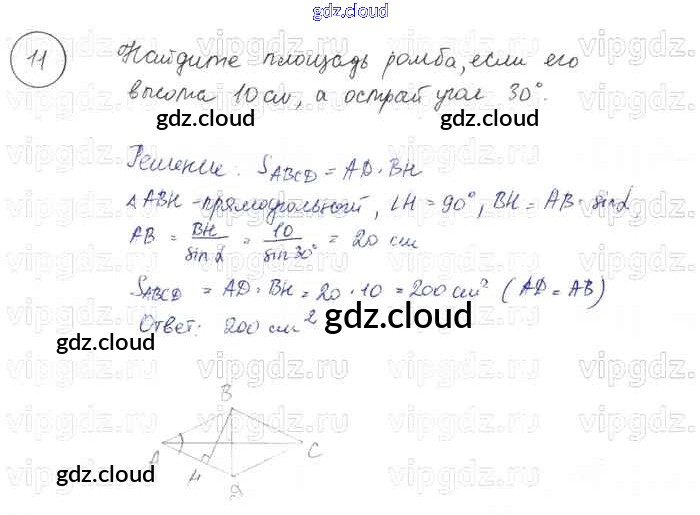 gdz.cloud
11
Найдите площадь ромба, если его
высота 10 см, а острый угол 30°.
gdz.cloud gdz.cloud
Решение: S_ABCD = AD · BH
△ ABH - прямоугольный, ∠H = 90°, BH = AB · sin α
AB = BH / sin α = 10 / sin 30° = 20 см
S_ABCD = AD · BH = 20 · 10 = 200 см² (AD = AB)
Ответ: 200 см²
gdz.cloud
gdz.cloud
B
A
C
H
gdz.cloud
gdz.cloud
vipgdz.ru